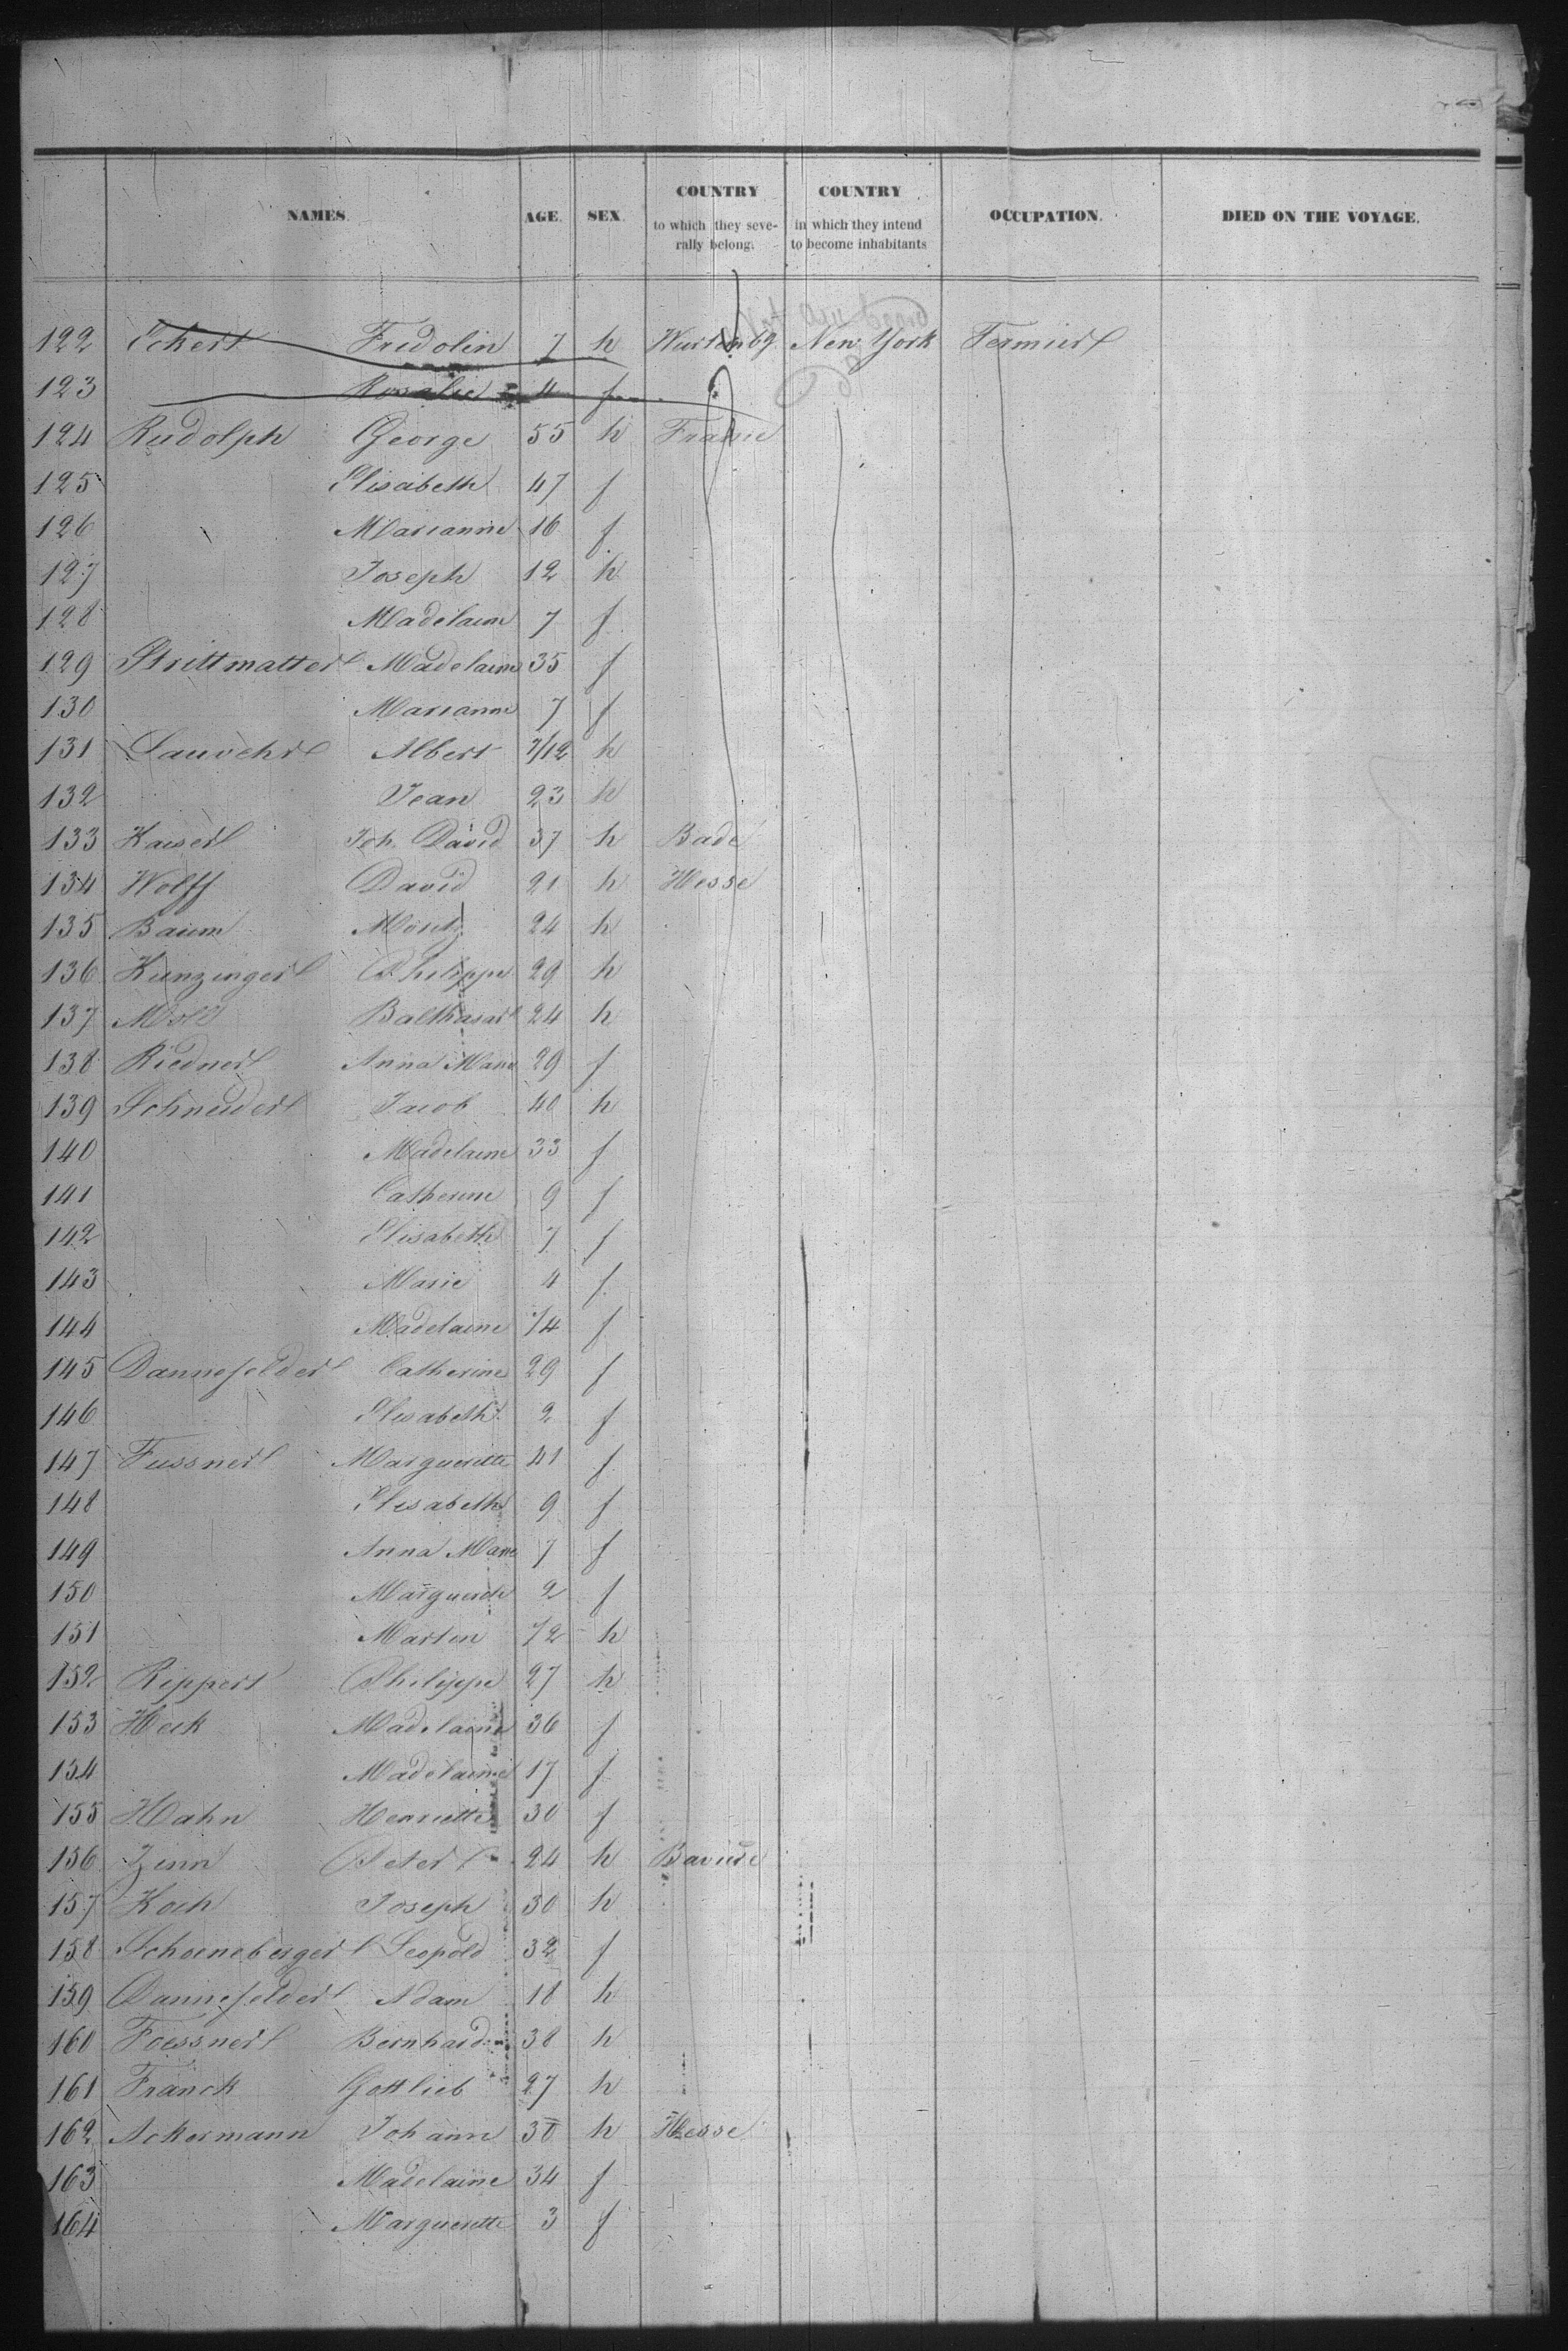 NAMES. AGE. SEX. COUNTRY to which they seve- rally belong. COUNTRY in which they intend to become inhabitants OCCUPATION. DIED ON THE VOYAGE.
122 Eckert Fridolin 7 h Wurtembg. New York Fermier
123 Rosalie 4 f
124 Rudolph George 55 h France
125 Elisabeth 47 f
126 Marianne 16 f
127 Joseph 12 h
128 Madelaine 7 f
129 Strittmatter Madelaine 35 f
130 Marianne 7 f
131 Albert 7/12 h
132 Jean 23 h
133 Kaiser Joh. David 37 h Bade
134 Wolff David 21 h Hesse
135 Baum Moritz 24 h
136 Kunzinger Philippe 29 h
137 Balthasar 24 h
138 Riedner Anna Marie 29 f
139 Schneider Jacob 40 h
140 Madelaine 33 f
141 Catherine 9 f
142 Elisabeth 7 f
143 Marie 4 f
144 Madelaine 1/4 f
145 Dannefelder Catherine 29 f
146 Elisabeth 2 f
147 Fussner Margueritte 41 f
148 Elisabeth 9 f
149 Anna Marie 7 f
150 Marguerite 2 f
151 Martin 1/2 h
152 Rippert Philippe 27 h
153 Heck Madelaine 36 f
154 Madelaine 17 f
155 Hahn Henriette 30 f
156 Zinn Peter 24 h Baviere
157 Koch Joseph 30 h
158 Schoeneberger Leopold 32 f
159 Dannefelder Adam 18 h
160 Foessner Bernhard 38 h
161 Franck Gottlieb 27 h
162 Ackermann Johann 30 h Hesse
163 Madelaine 34 f
164 Margueritte 3 f